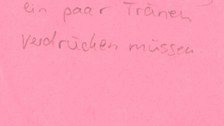 ein paar Tränen
verdrücken müssen